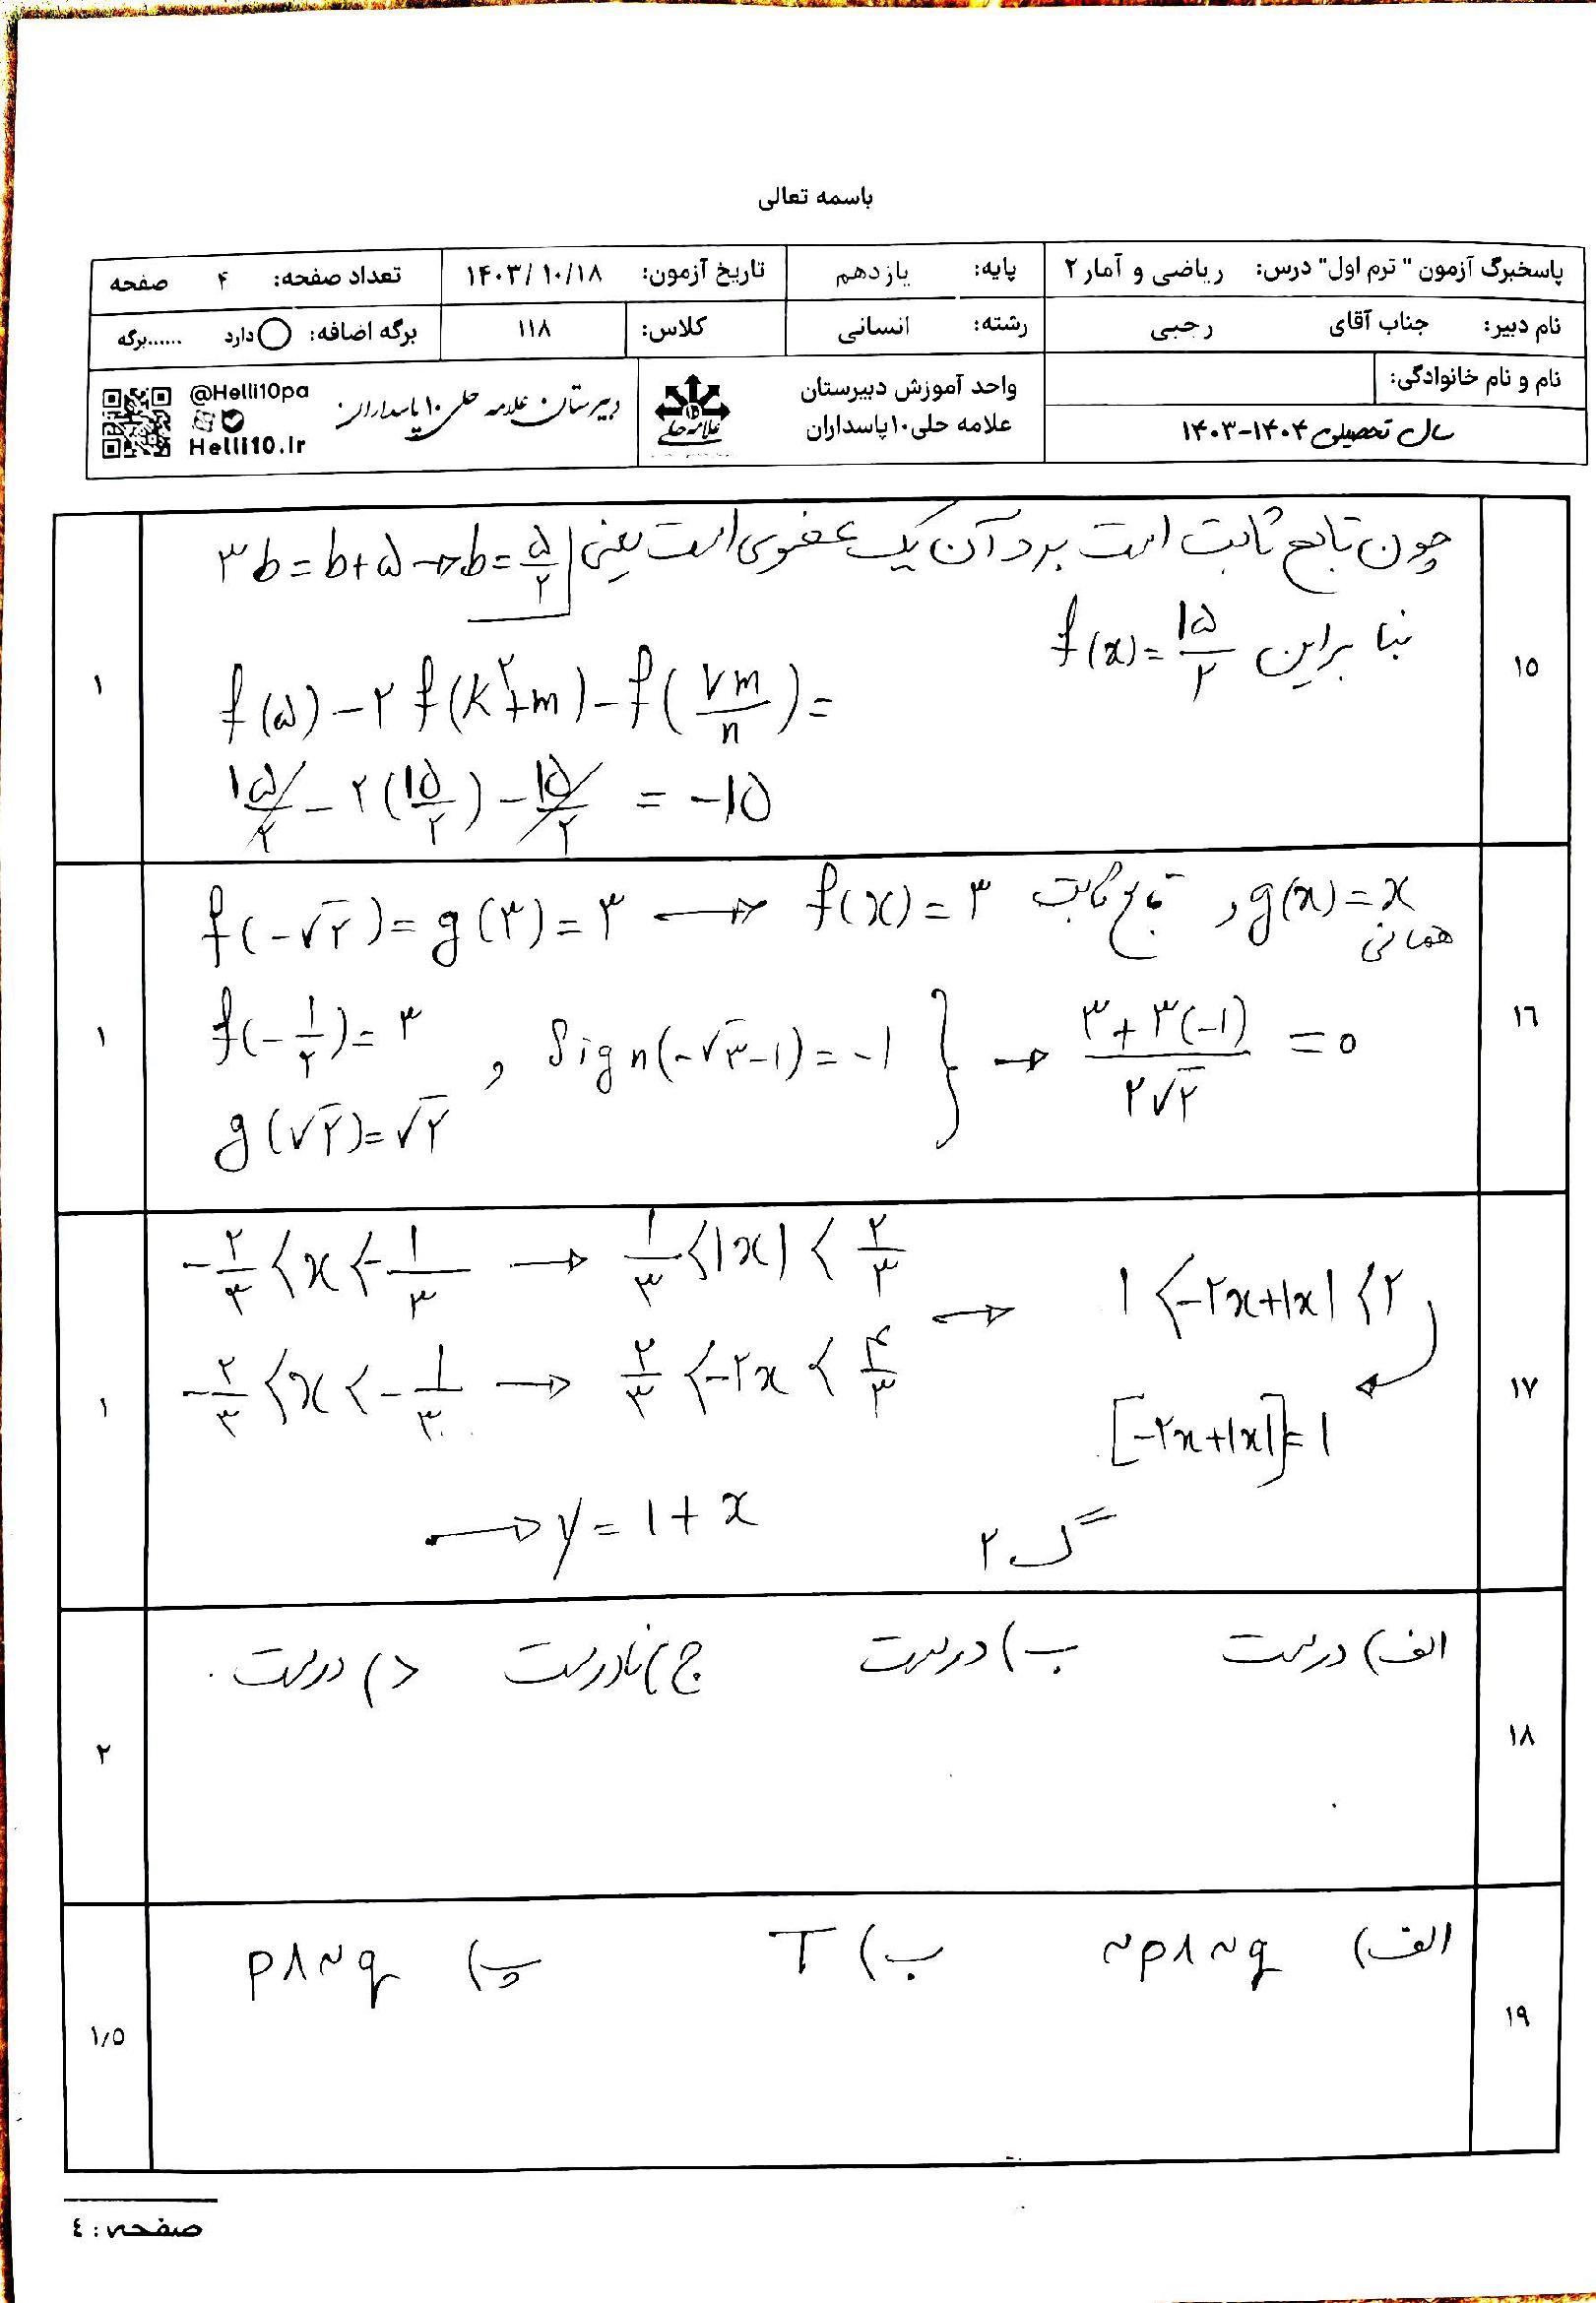 باسمه تعالی
پاسخبرگ آزمون " ترم اول" درس: ریاضی و آمار ۲ پایه: یازدهم تاریخ آزمون: ۱۴۰۳/۱۰/۱۸ تعداد صفحه: ۴ صفحه
نام دبیر: جناب آقای رجبی رشته: انسانی کلاس: ۱۱۸ برگه اضافه: دارد ......برگه
نام و نام خانوادگی:
سال تحصیلی ۱۴۰۴-۱۴۰۳
واحد آموزش دبیرستان
علامه حلی۱۰پاسداران
علامه حلی
دبیرستان علامه حلی ۱۰ پاسداران
@Helli10pa
Helli10.Ir
۱۵
چون تابع ثابت است برد آن یک عضوی است یعنی ۳b = b+۵ → b = ۵/۲
بنا براین f(x) = ۱۵/۲
f(۵) - ۲f(k²+m) - f(۷m/n) =
۱۵/۲ - ۲(۱۵/۲) - ۱۵/۲ = -۱۵
۱
۱۶
f(-√۲) = g(۳) = ۳ → f(x) = ۳ تابع ثابت و g(x) = x همانی
f(-۱/۲) = ۳ , Sign(-√۳-۱) = -۱ } → (۳+۳(-۱))/(۲√۲) = ۰
g(√۲) = √۲
۱
۱۷
-۲/۳ < x < -۱/۳ → ۱/۳ < |x| < ۲/۳
-۲/۳ < x < -۱/۳ → ۲/۳ < -۲x < ۴/۳ → ۱ < -۲x+|x| < ۲
[-۲x+|x|] = ۱
→ y = ۱+x
گ ۲
۱
۱۸
الف) درست ب) درست ج) نادرست د) درست.
۲
۱۹
الف) ~p∧~q ب) T پ) p∧~q
۱/۵
صفحه: ٤